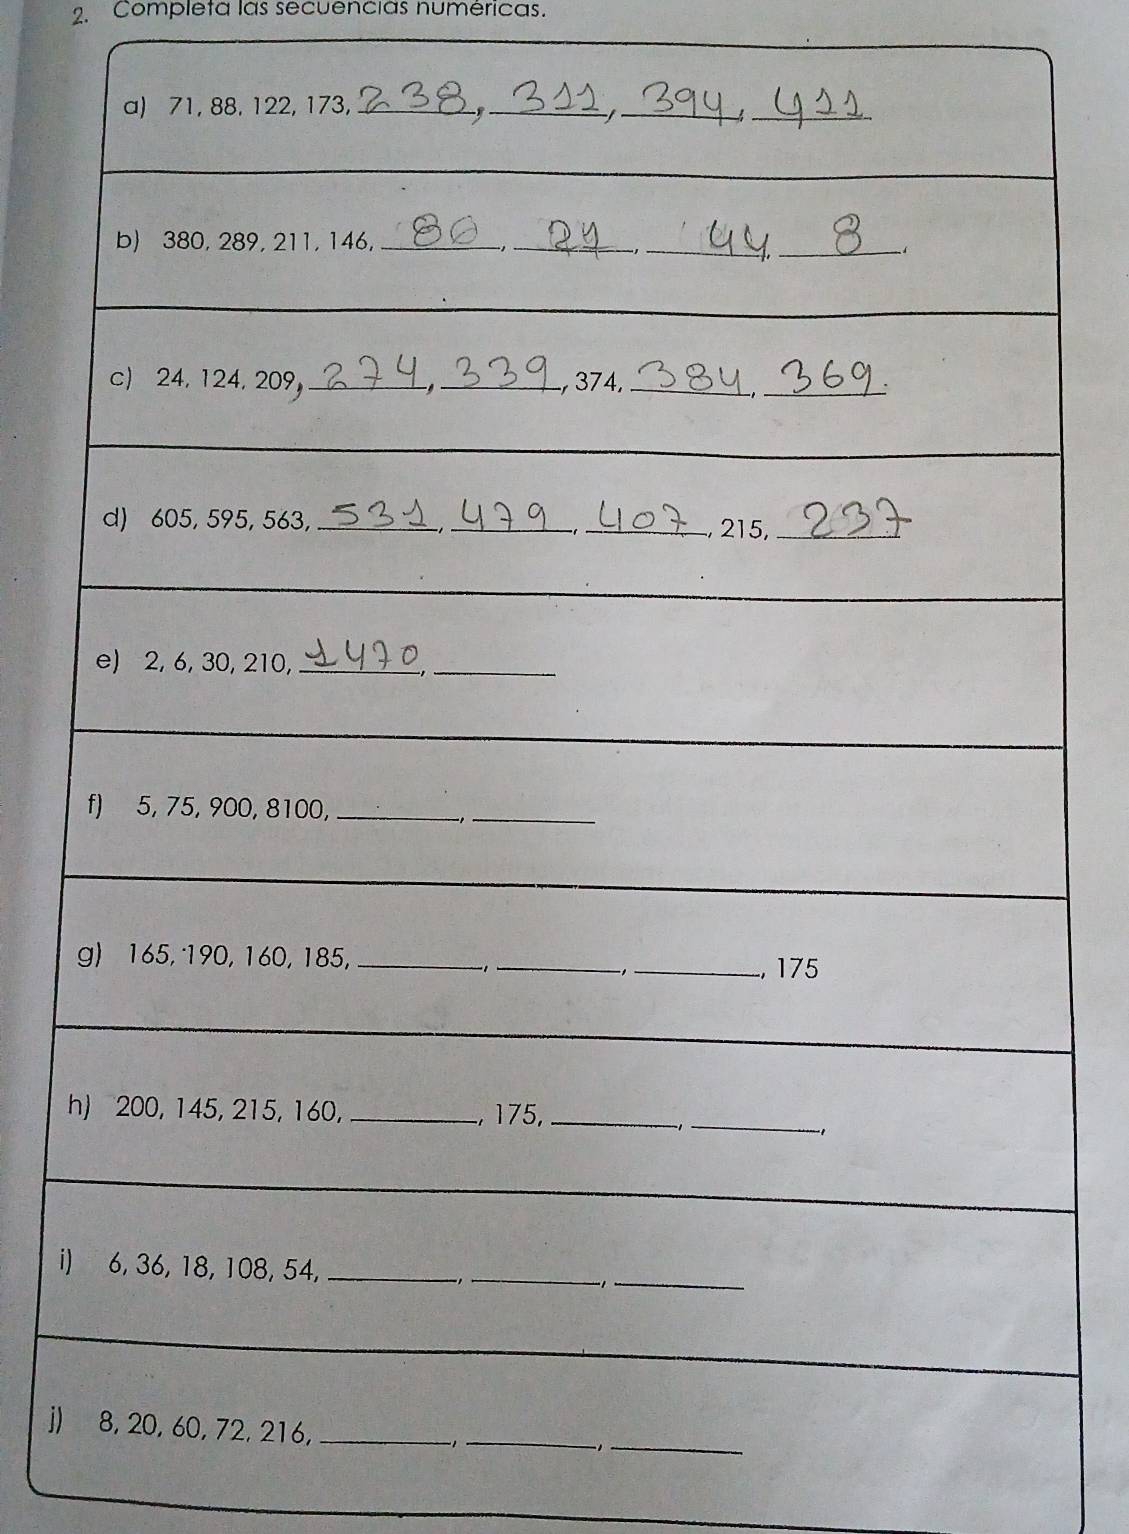 2. Completa las secuencias numéricas.
a) 71, 88, 122, 173, 238, 311, 394, 411
b) 380, 289, 211, 146, 80, 24, 44, 8.
c) 24, 124, 209, 274, 339, 374, 384, 369.
d) 605, 595, 563, 531, 479, 407, 215, 237
e) 2, 6, 30, 210, 1470, ________
f) 5, 75, 900, 8100, ________, ________
g) 165, 190, 160, 185, ________, ________, ________, 175
h) 200, 145, 215, 160, ________, 175, ________, ________,
i) 6, 36, 18, 108, 54, ________, ________, ________
j) 8, 20, 60, 72, 216, ________, ________, ________